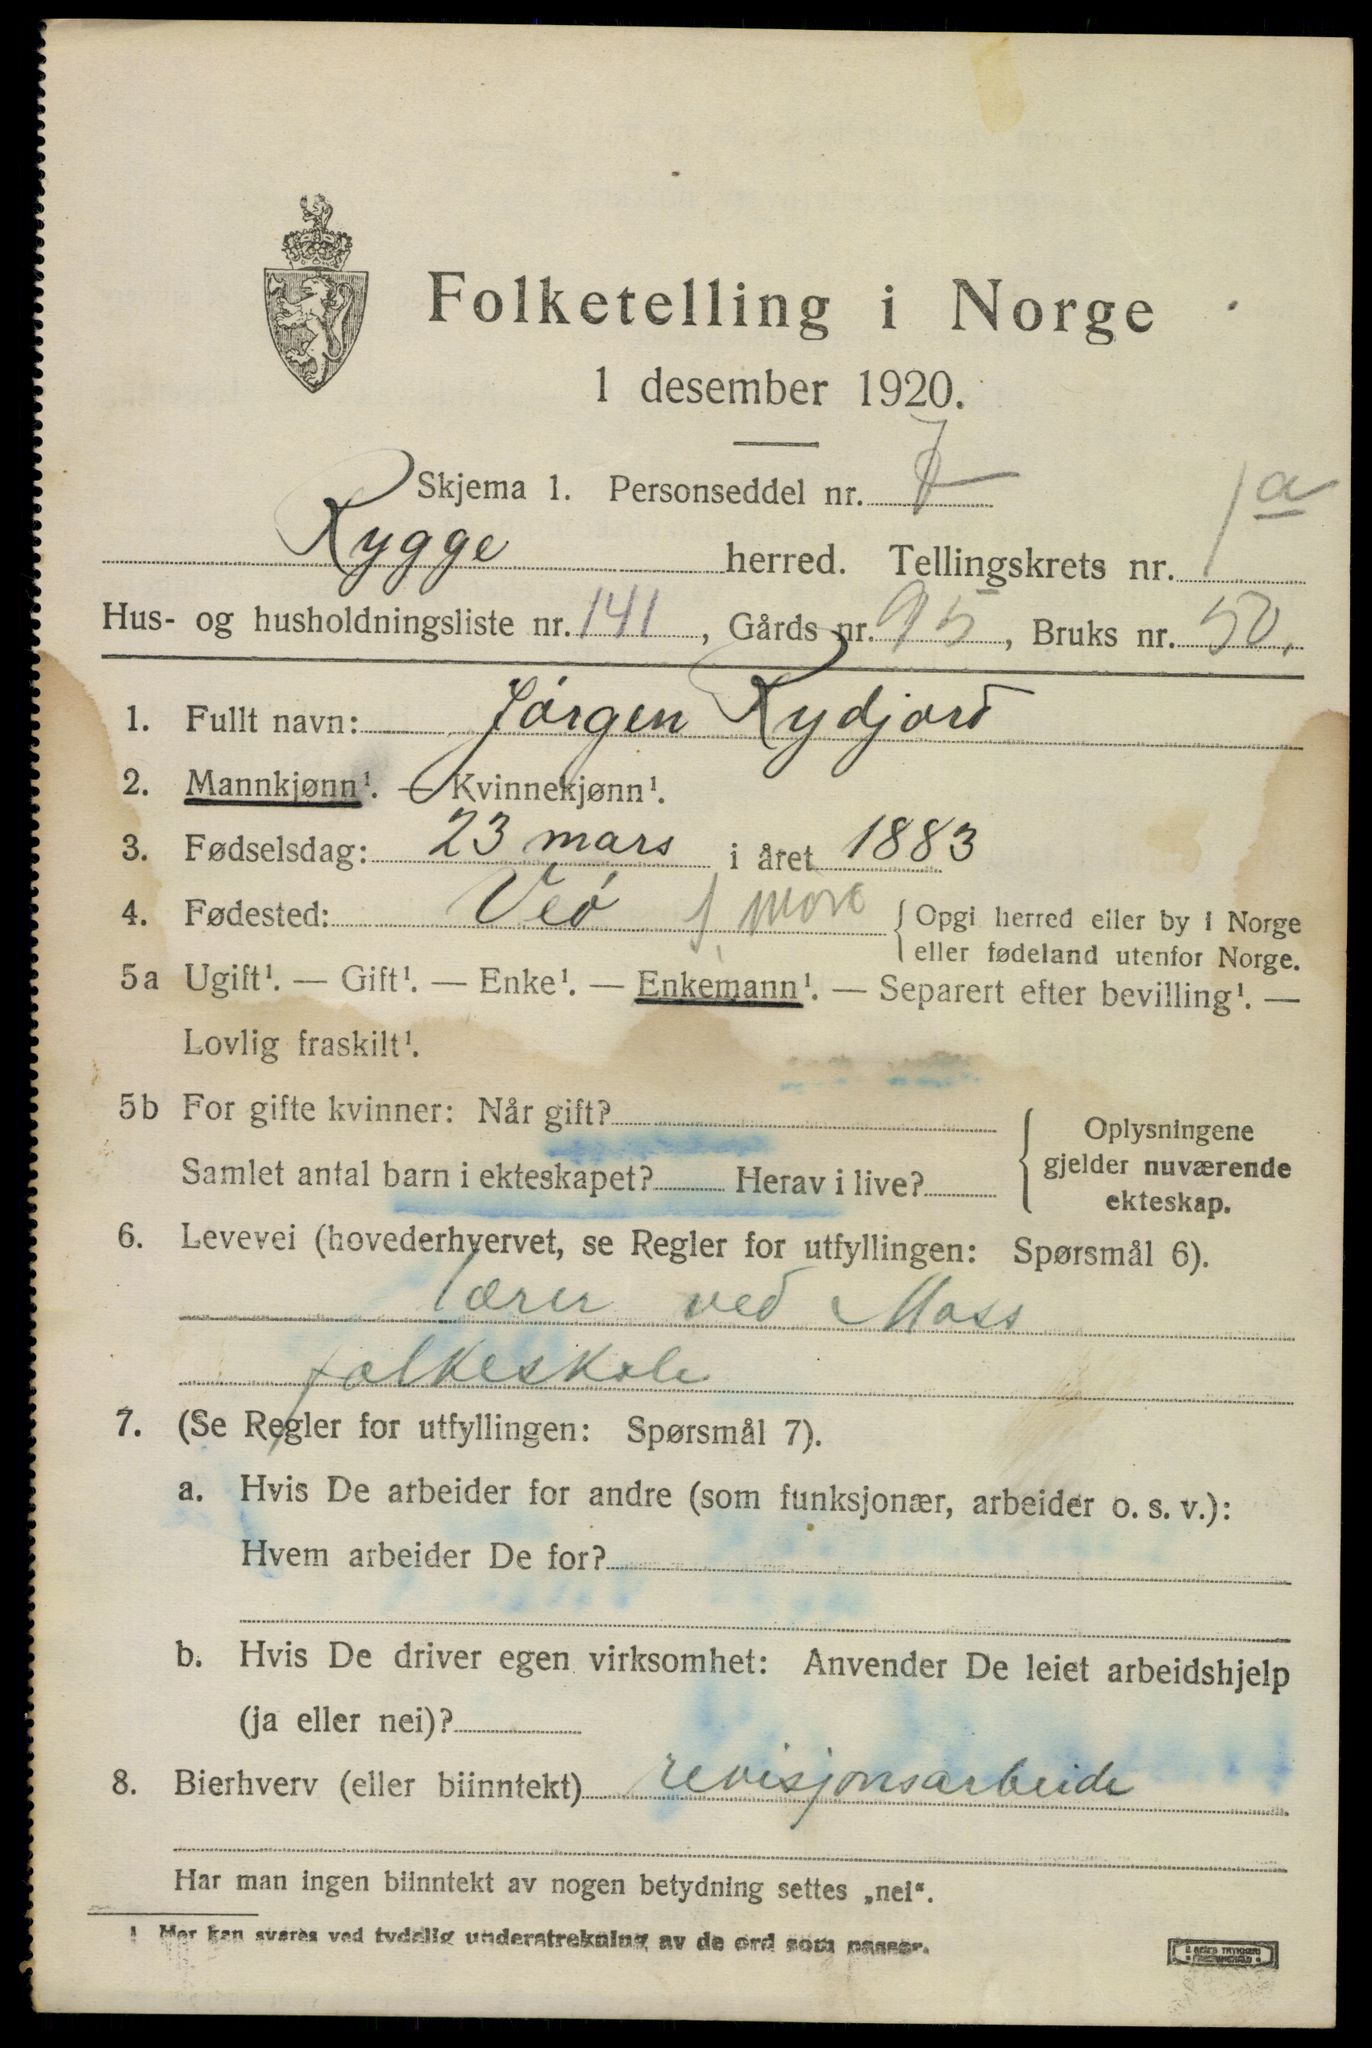 Folketelling i Norge
1 desember 1920.
Skjema 1. Personseddel nr. 7
Rygge herred. Tellingskrets nr. 1a
Hus- og husholdningsliste nr. 141, Gårds nr. 95, Bruks nr. 50.
1. Fullt navn: Jórgen Rydjord
2. Mannkjønn¹. — Kvinnekjønn¹.
3. Fødselsdag: 23 mars i året 1883
4. Fødested: Veó More { Opgi herred eller by i Norge
eller fødeland utenfor Norge.
5a Ugift¹. — Gift¹. — Enke¹. — Enkemann¹. — Separert efter bevilling¹. —
Lovlig fraskilt¹.
5b For gifte kvinner: Når gift?
Samlet antal barn i ekteskapet? Herav i live?
{ Oplysningene
gjelder nuværende
ekteskap.
6. Levevei (hovederhvervet, se Regler for utfyllingen: Spørsmål 6).
lærer ved Moss
folkeskole
7. (Se Regler for utfyllingen: Spørsmål 7).
a. Hvis De arbeider for andre (som funksjonær, arbeider o. s. v.):
Hvem arbeider De for?
b. Hvis De driver egen virksomhet: Anvender De leiet arbeidshjelp
(ja eller nei)?
8. Bierhverv (eller biinntekt) revisjonsarbeide
Har man ingen biinntekt av nogen betydning settes „nei“.
1 Her kan svares ved tydelig understrekning av de ord som passer.